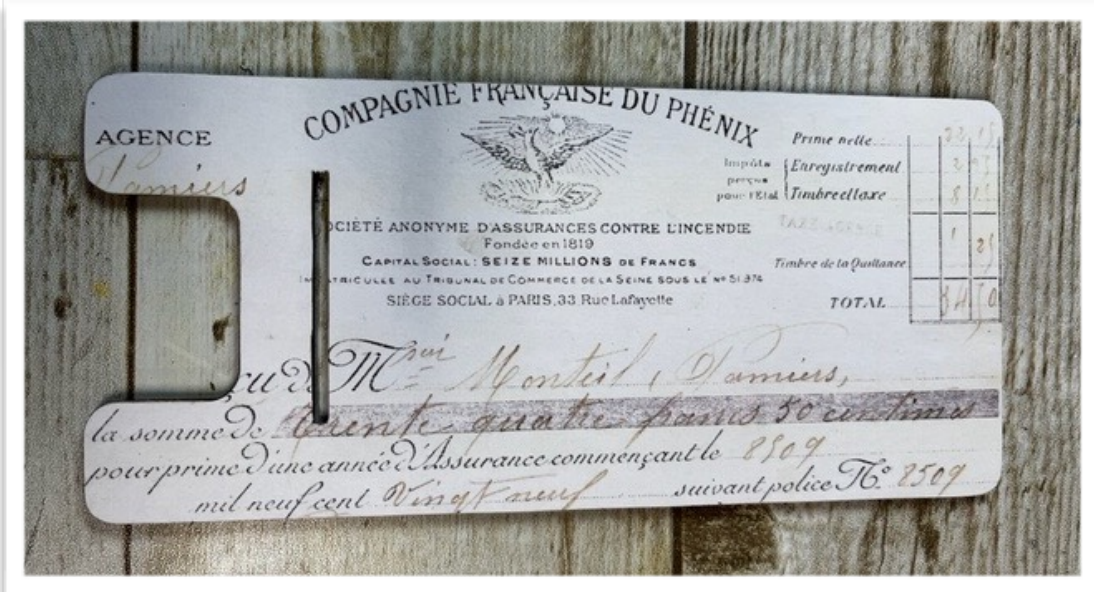 COMPAGNIE FRANÇAISE DU PHÉNIX
AGENCE
Pamiers
OCIÉTÉ ANONYME D'ASSURANCES CONTRE L'INCENDIE
Fondée en 1819
CAPITAL SOCIAL: SEIZE MILLIONS DE FRANCS
TRICULÉE AU TRIBUNAL DE COMMERCE DE LA SEINE SOUS LE Nº 51.974
SIÈGE SOCIAL à PARIS, 33 Rue Lafayette
Prime nette
Impôts perçus pour l'Etat
Enregistrement
Timbre et taxe
Timbre de la Quittance
TOTAL 34 50
çu de M Monteil, Pamiers,
la somme de trente quatre francs 50 centimes
pour prime d'une année d'Assurance commençant le 8509
mil neuf cent Vingt neuf suivant police Nº 8509